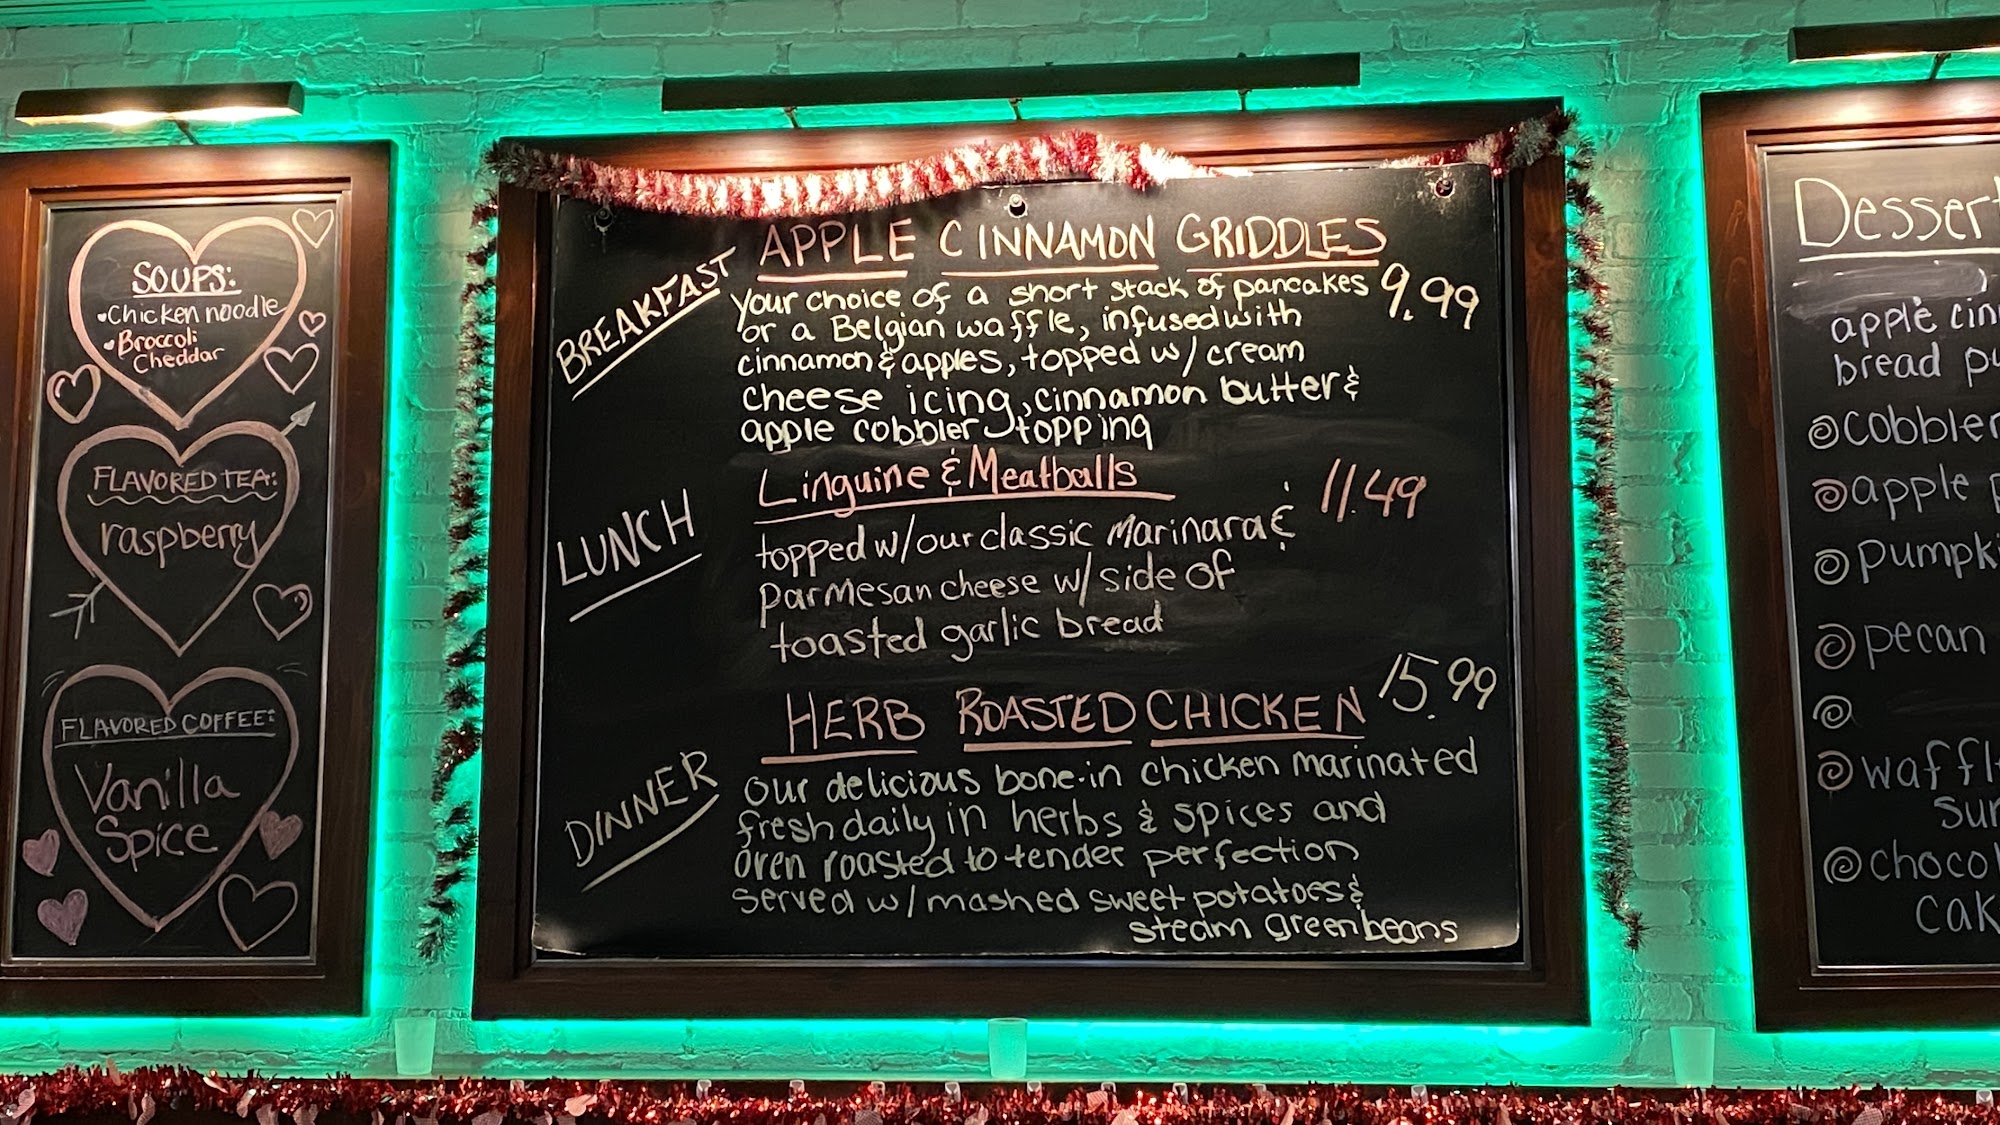 SOUPS:
•Chicken noodle
•Broccoli
Cheddar
FLAVORED TEA:
raspberry
FLAVORED COFFEE:
Vanilla
Spice
BREAKFAST
APPLE CINNAMON GRIDDLES
9.99
your choice of a short stack of pancakes
or a Belgian waffle, infused with
cinnamon & apples, topped w/ cream
cheese icing, cinnamon butter &
apple cobbler topping
LUNCH
Linguine & Meatballs
11.49
topped w/our classic Marinara &
parmesan cheese w/ side of
toasted garlic bread
DINNER
HERB ROASTED CHICKEN
15.99
our delicious bone-in chicken marinated
fresh daily in herbs & spices and
oven roasted to tender perfection
served w/ mashed sweet potatoes &
steam greenbeans
Dessert
apple cin
bread pu
cobbler
apple p
pumpki
pecan
waffl
sun
choco
cak